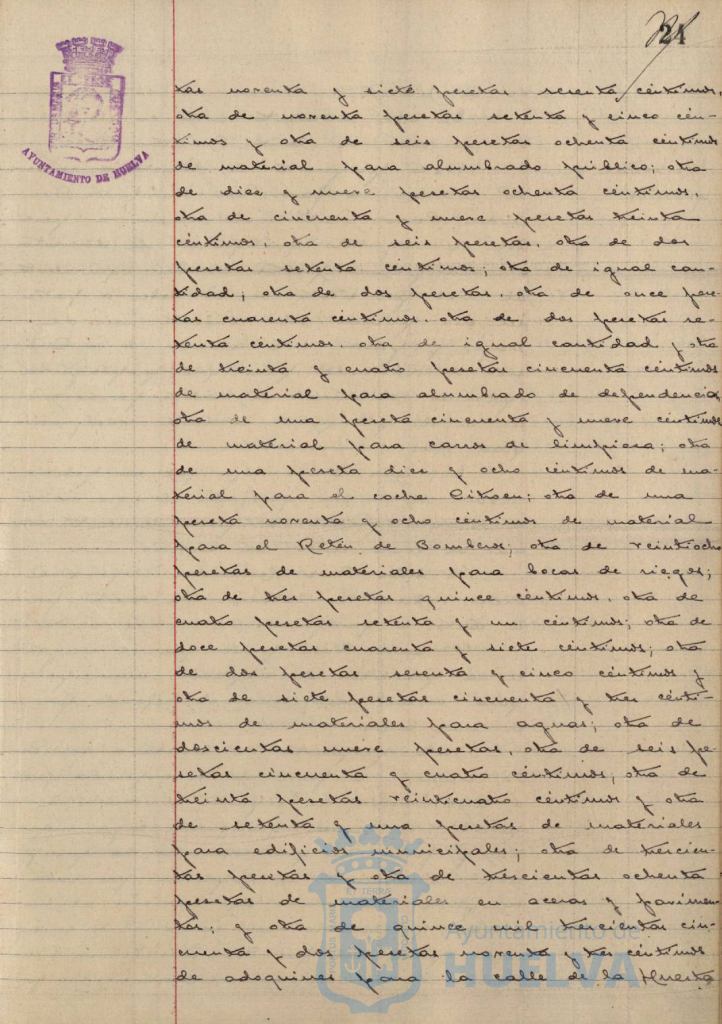 24
AYUNTAMIENTO DE HUELVA
tas noventa y siete pesetas sesenta céntimos,
otra de noventa pesetas setenta y cinco cén-
timos y otra de seis pesetas ochenta céntimos
de material para alumbrado público; otra
de diez y nueve pesetas ochenta céntimos,
otra de cincuenta y nueve pesetas treinta
céntimos, otra de seis pesetas, otra de dos
pesetas setenta céntimos; otra de igual can-
tidad; otra de dos pesetas, otra de once pese-
tas cuarenta céntimos, otra de dos pesetas se-
tenta céntimos, otra de igual cantidad y otra
de treinta y cuatro pesetas cincuenta céntimos
de material para alumbrado de dependencias
otra de una peseta cincuenta y nueve céntimos
de material para carros de limpieza; otra
de una peseta diez y ocho céntimos de ma-
terial para el coche Citroen; otra de una
peseta noventa y ocho céntimos de material
para el Retén de Bomberos; otra de veintiocho
pesetas de materiales para bocas de riegos;
otra de tres pesetas quince céntimos, otra de
cuatro pesetas setenta y un céntimos; otra de
doce pesetas cuarenta y siete céntimos; otra
de dos pesetas sesenta y cinco céntimos y
otra de siete pesetas cincuenta y tres cénti-
mos de materiales para aguas; otra de
doscientas nueve pesetas, otra de seis pe-
setas cincuenta y cuatro céntimos, otra de
treinta pesetas veinticuatro céntimos y otra
de setenta y una pesetas de materiales
para edificios municipales; otra de trescien-
tas pesetas y otra de trescientas ochenta
pesetas de materiales en aceras y pavimen-
tos; y otra de quince mil trescientas cin-
cuenta y dos pesetas noventa y tres céntimos
de adoquines para la calle de la Huerta
Ayuntamiento de
HUELVA